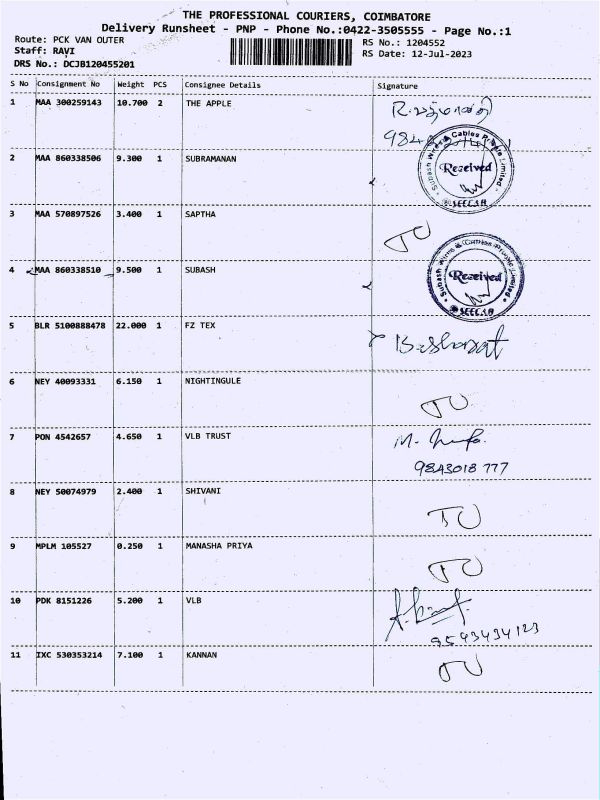 THE PROFESSIONAL COURIERS, COIMBATORE
Delivery Runsheet - PNP - Phone No.:0422-3505555 - Page No.:1
Route: PCK VAN OUTER
RS No.: 1204552
Staff: RAVI
RS Date: 12-Jul-2023
DRS No.: DCJB120455201
S No Consignment No Weight PCS Consignee Details Signature
1 MAA 300259143 10.700 2 THE APPLE
2 MAA 860338506 9.300 1 SUBRAMANAN
Subash Wires & Cables Private Limited
Received
3 MAA 570897526 3.400 1 SAPTHA
4 MAA 860338510 9.500 1 SUBASH
Subash Wires & Cables Private Limited
Received
5 BLR 5100888478 22.000 1 FZ TEX
6 NEY 40093331 6.150 1 NIGHTINGULE
7 PON 4542657 4.650 1 VLB TRUST
9843018 777
8 NEY 50074979 2.400 1 SHIVANI
9 MPLM 105527 0.250 1 MANASHA PRIYA
10 PDK 8151226 5.200 1 VLB
9543434123
11 IXC 530353214 7.100 1 KANNAN